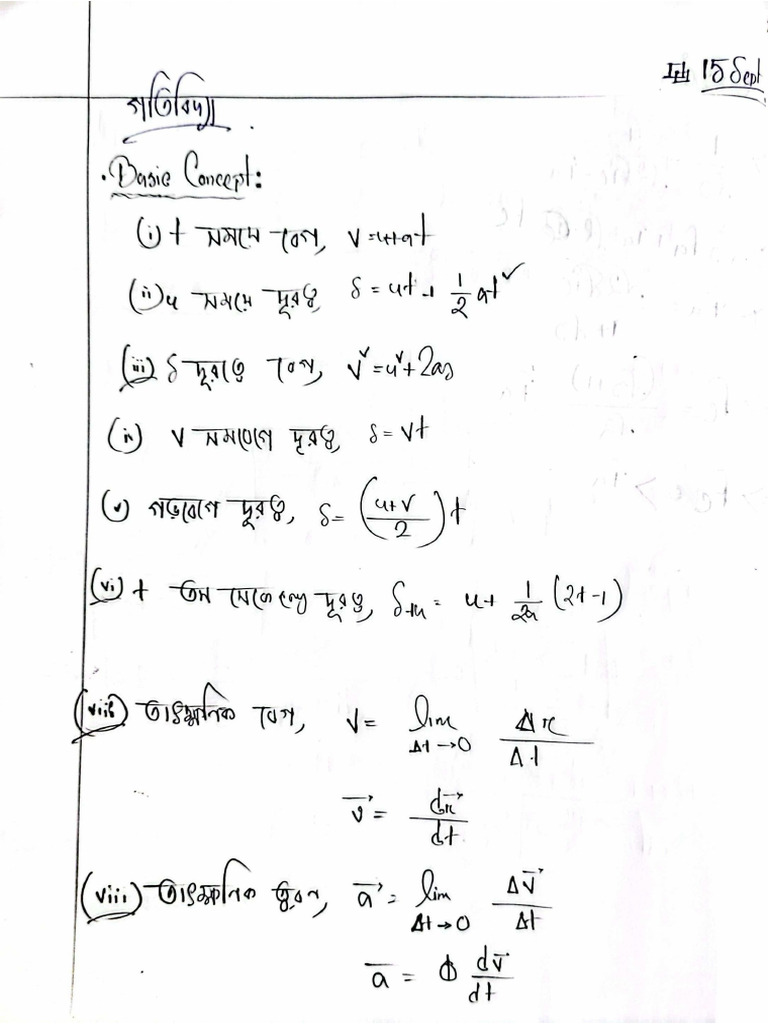 15 Sept
গতিবিদ্যা
• Basic Concept:
(i) t সময়ে বেগ, v = u+at
(ii) u সময়ে দূরত্ব, s = ut + 1/2 at²
(iii) s দূরত্বে বেগ, v² = u² + 2as
(iv) v সমবেগে দূরত্ব, s = vt
(v) গড়বেগে দূরত্ব, s = (u+v/2) t
(vi) t তম সেকেন্ডে দূরত্ব, Sth = u + 1/2a (2t-1)
(vii) তাৎক্ষনিক বেগ, v = lim Δt→0 Δx/Δt
v⃗ = dx⃗/dt
(viii) তাৎক্ষনিক ত্বরন, a⃗ = lim Δt→0 Δv⃗/Δt
a⃗ = dv⃗/dt